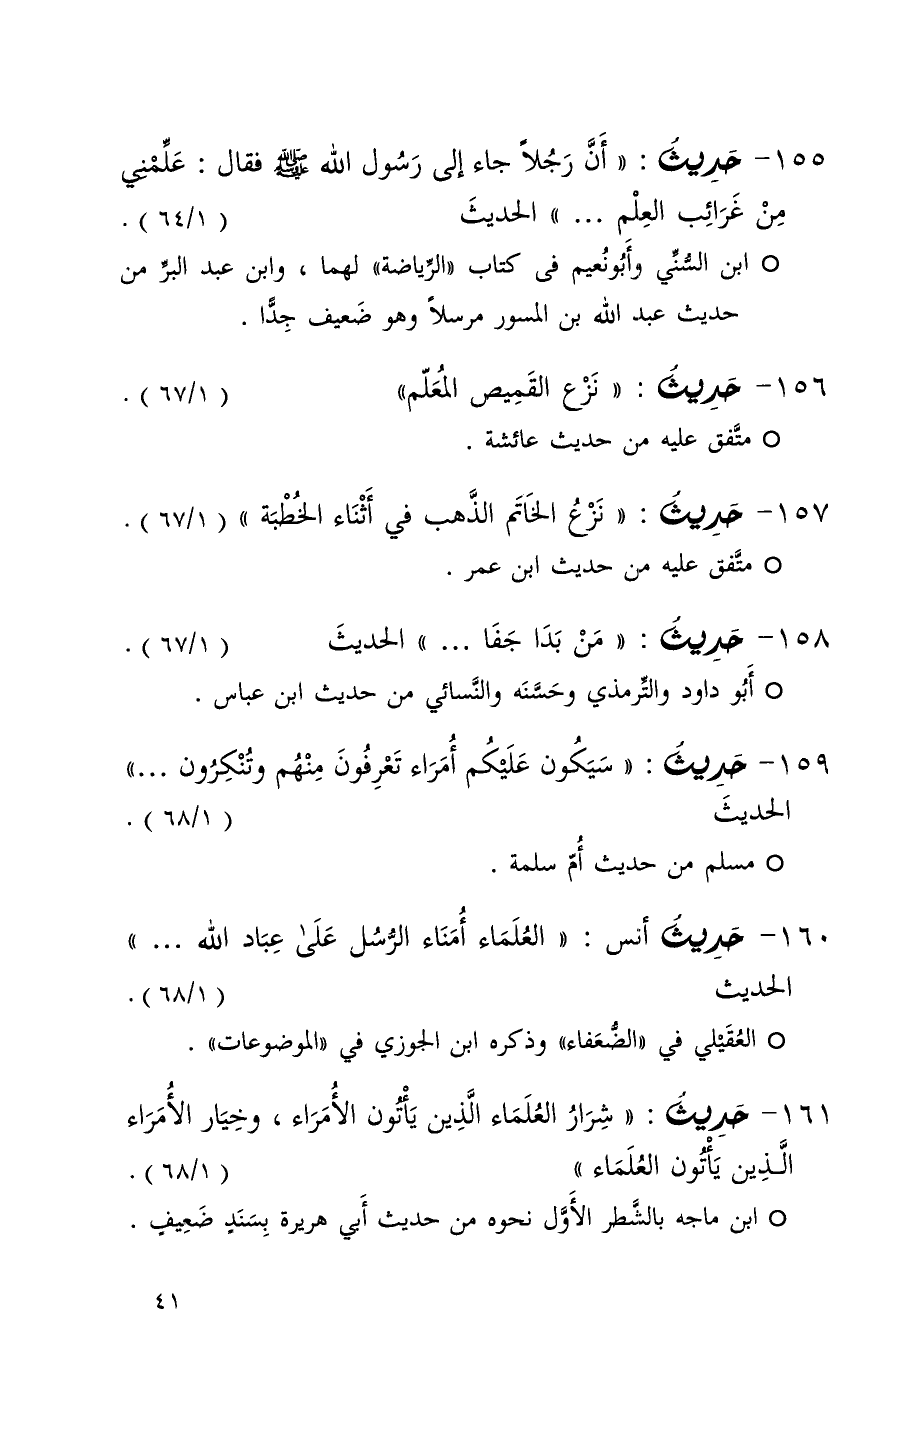 ١٥٥- حَدِيثُ : « أَنَّ رَجُلاً جاء إلى رَسُول الله ﷺ فقال : عَلِّمْنِي
مِنْ غَرَائِب العِلْم ... » الحديثَ ( ٦٤/١ ) .
○ ابن السُّنِّي وأَبُونُعيم فى كتاب «الرِّياضة» لهما ، وابن عبد البرِّ من
حديث عبد الله بن المسور مرسلاً وهو ضَعيف جِدًّا .
١٥٦- حَدِيثُ : « نَزْع القَمِيص المُعَلّم» ( ٦٧/١ ) .
○ متَّفق عليه من حديث عائشة .
١٥٧- حَدِيثُ : « نَزْعُ الخَاتَم الذَّهب في أَثْنَاء الخُطْبَة » ( ٦٧/١ ) .
○ متَّفق عليه من حديث ابن عمر .
١٥٨- حَدِيثُ : « مَنْ بَدَا جَفَا ... » الحديثَ ( ٦٧/١ ) .
○ أَبُو داود والتِّرمذي وحَسَّنَه والنَّسائي من حديث ابن عباس .
١٥٩- حَدِيثُ : « سَيَكُون عَلَيْكُم أُمَرَاء تَعْرِفُونَ مِنْهُم وتُنْكِرُون ...»
الحديثَ ( ٦٨/١ ) .
○ مسلم من حديث أُمّ سلمة .
١٦٠- حَدِيثُ أنس : « العُلَمَاء أُمَنَاء الرُّسُل عَلَىٰ عِبَاد الله ... »
الحديث ( ٦٨/١ ) .
○ العُقَيْلي في «الضُّعَفاء» وذكره ابن الجوزي في «الموضوعات» .
١٦١- حَدِيثُ : « شِرَارُ العُلَمَاء الَّذِين يَأْتُون الأُمَرَاء ، وخِيَار الأُمَرَاء
الَّـذِين يَأْتُون العُلَمَاء » ( ٦٨/١ ) .
○ ابن ماجه بالشَّطر الأَوَّل نحوه من حديث أَبي هريرة بِسَنَدٍ ضَعِيفٍ .
٤١